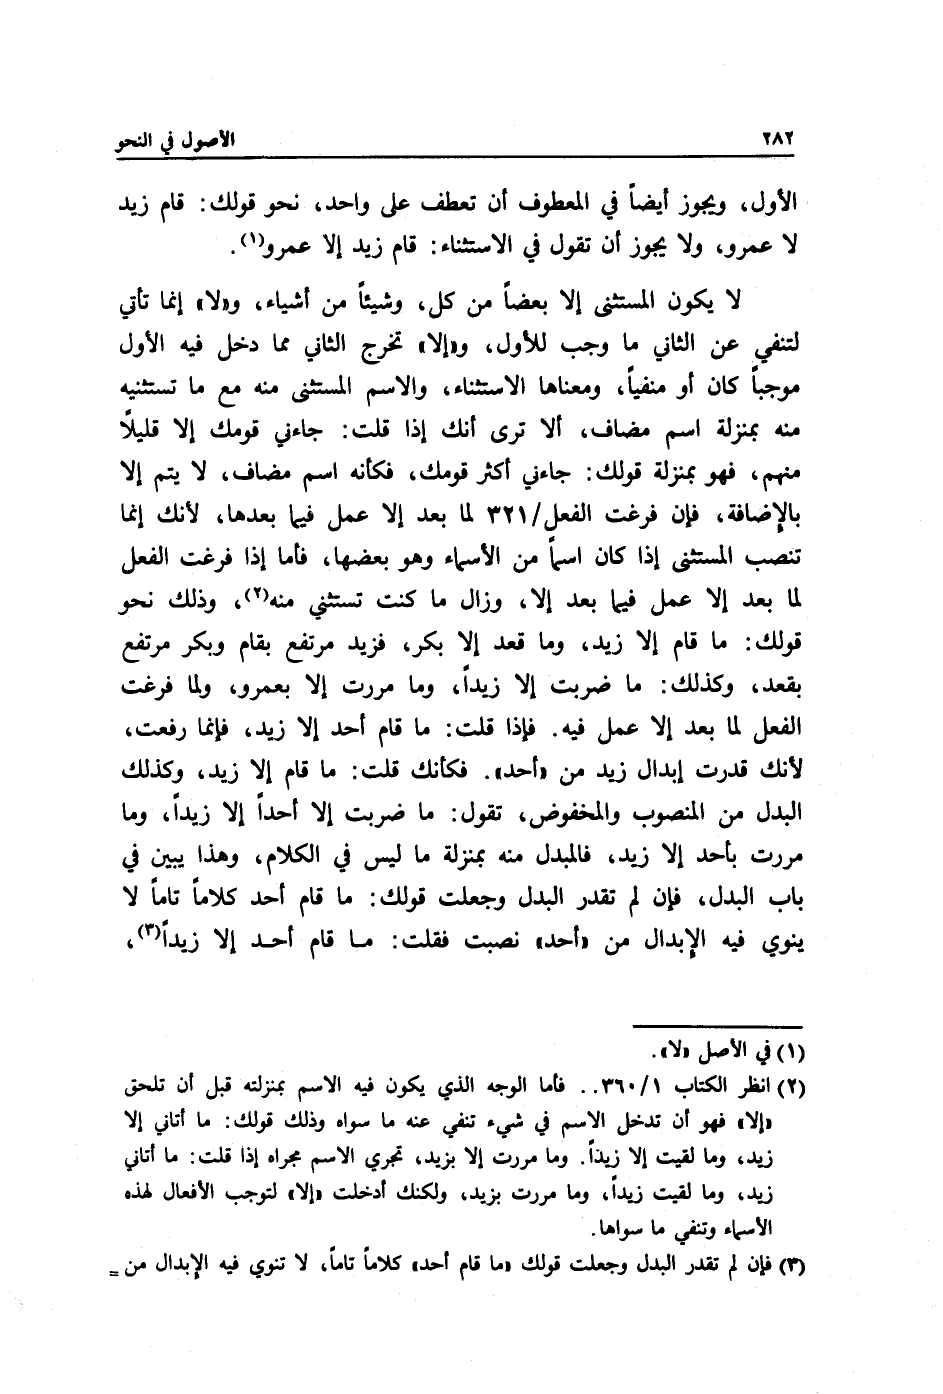 ٢٨٢ الأصول في النحو
الأول، ويجوز أيضاً في المعطوف أن تعطف على واحد، نحو قولك: قام زيد
لا عمرو، ولا يجوز أن تقول في الاستثناء: قام زيد إلا عمرو(١).
لا يكون المستثنى إلا بعضاً من كل، وشيئاً من أشياء، و«لا» إنما تأتي
لتنفي عن الثاني ما وجب للأول، و«إلا» تخرج الثاني مما دخل فيه الأول
موجباً كان أو منفياً، ومعناها الاستثناء، والاسم المستثنى منه مع ما تستثنيه
منه بمنزلة اسم مضاف، ألا ترى أنك إذا قلت: جاءني قومك إلا قليلاً
منهم، فهو بمنزلة قولك: جاءني أكثر قومك، فكأنه اسم مضاف، لا يتم إلا
بالإضافة، فإن فرغت الفعل/٣٢١ لما بعد إلا عمل فيما بعدها، لأنك إنما
تنصب المستثنى إذا كان اسماً من الأسماء وهو بعضها، فأما إذا فرغت الفعل
لما بعد إلا عمل فيما بعد إلا، وزال ما كنت تستثني منه(٢)، وذلك نحو
قولك: ما قام إلا زيد، وما قعد إلا بكر، فزيد مرتفع بقام وبكر مرتفع
بقعد، وكذلك: ما ضربت إلا زيداً، وما مررت إلا بعمرو، ولما فرغت
الفعل لما بعد إلا عمل فيه. فإذا قلت: ما قام أحد إلا زيد، فإنما رفعت،
لأنك قدرت إبدال زيد من «أحد». فكأنك قلت: ما قام إلا زيد، وكذلك
البدل من المنصوب والمخفوض، تقول: ما ضربت إلا أحداً إلا زيداً، وما
مررت بأحد إلا زيد، فالمبدل منه بمنزلة ما ليس في الكلام، وهذا يبين في
باب البدل، فإن لم تقدر البدل وجعلت قولك: ما قام أحد كلاماً تاماً لا
ينوي فيه الإبدال من «أحد» نصبت فقلت: ما قام أحد إلا زيداً(٣)،
(١) في الأصل «لا».
(٢) انظر الكتاب ٣٦٠/١.. فأما الوجه الذي يكون فيه الاسم بمنزلته قبل أن تلحق
«إلا» فهو أن تدخل الاسم في شيء تنفي عنه ما سواه وذلك قولك: ما أتاني إلا
زيد، وما لقيت إلا زيداً. وما مررت إلا بزيد، تجري الاسم مجراه إذا قلت: ما أتاني
زيد، وما لقيت زيداً، وما مررت بزيد، ولكنك أدخلت «إلا» لتوجب الأفعال لهذه
الأسماء وتنفي ما سواها.
(٣) فإن لم تقدر البدل وجعلت قولك «ما قام أحد» كلاماً تاماً، لا تنوي فيه الإبدال من =